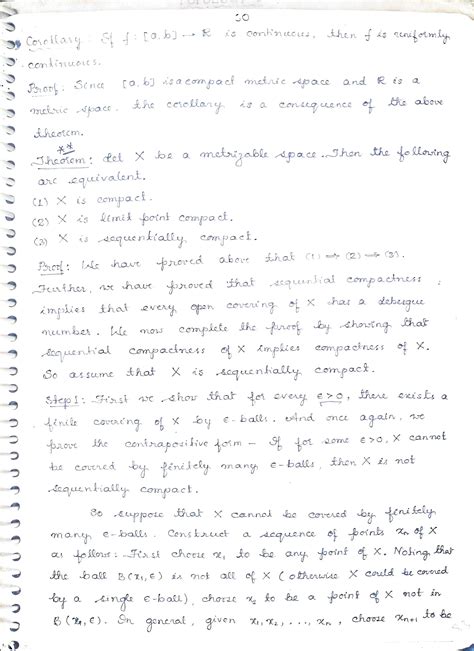 TOPOLOGY
50
Corollary: If f: [a,b] → R is continuous, then f is uniformly
continuous.
Proof: Since [a,b] is a compact metric space and R is a
metric space. the corollary is a consequence of the above
theorem.
**
Theorem: Let X be a metrizable space. Then the following
are equivalent.
(1) X is compact.
(2) X is limit point compact.
(3) X is sequentially compact.
Proof: We have proved above that (1) ⇒ (2) ⇒ (3).
Further, we have proved that sequential compactness
implies that every open covering of X has a debesgue
number. We now complete the proof by showing that
sequential compactness of X implies compactness of X.
So assume that X is sequentially compact.
Step 1: First we show that for every ε>0, there exists a
finite covering of X by ε-balls. And once again, we
prove the contrapositive form – If for some ε>0, X cannot
be covered by finitely many ε-balls, then X is not
sequentially compact.
So suppose that X cannot be covered by finitely
many ε-balls. Construct a sequence of points xn of X
as follows: First choose x1 to be any point of X. Noting that
the ball B(x1,ε) is not all of X (otherwise X could be covered
by a single ε-ball), choose x2 to be a point of X not in
B(x1,ε). In general, given x1, x2, ..., xn, choose xn+1 to be